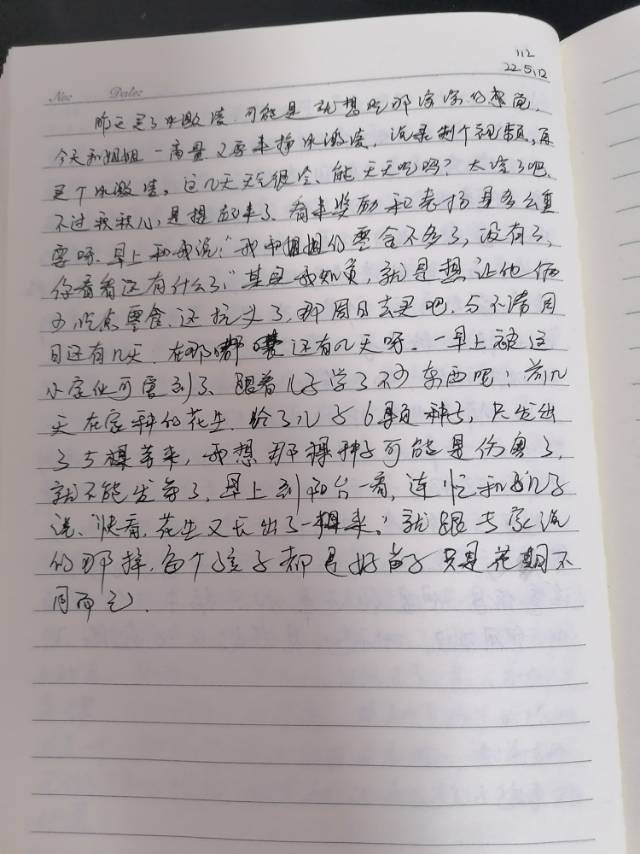 112
22.5.12
No: Date:
昨天买了冰激凌,可能是就想吃那凉凉的感觉,
今天和姐姐一商量又要来掉冰激凌,说录制个视频,再
买个冰激凌。这几天天气很冷、能天天吃吗?太冷了吧,
不过我我儿,是想起来了,看来奖励和表扬是多么重
要呀。早上和我说:"我和姐姐的零食不多了,没有了,
你看看还有什么了"其里我知道,就是想让他俩
少吃点零食,这抗头了,那周日去买吧,与不清周
日还有几天,在那嘟囔还有几天呀。一早上被这
小家伙可雷到了、跟着儿子学了不少东西呢!前几
天在家种的花生,给了儿子6颗种子,只发出
了5棵芽来,我想那棵种子可能是伤着了,
就不能发芽了,早上到阳台一看,连忙和儿子
说,快看,花生又长出了一棵来。就跟专家说
的那样,每个孩子都是好苗子只是花期不
同而已.